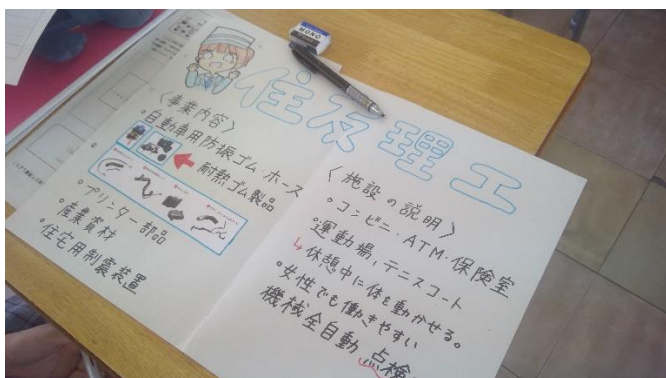 MONO
住友理工
〈事業内容〉
・自動車用防振ゴム・ホース
耐熱ゴム製品
・プリンター部品
・産業資材
・住宅用制震装置
〈施設の説明〉
・コンビニ・ATM・保険室
・運動場,テニスコート
↳休憩中に体を動かせる。
・女性でも働きやすい
機械全自動 点検